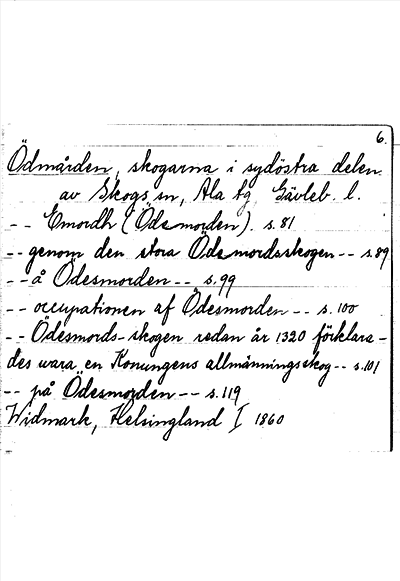 6.
Ödmården, skogarna i sydöstra delen
av Skogs sn, Ala tg, Gävleb. l.
-- Emordh (Ödemorden). s.81
-- genom den stora Ödemordsskogen -- s.89
-- å Ödesmorden -- s.99
-- occupationen af Ödesmorden -- s.100
-- Ödesmords-skogen redan år 1320 förklara-
des vara en Konungens allmänningsskog -- s.101
-- på Ödesmorden -- s.119
Widmark, Helsingland I 1860